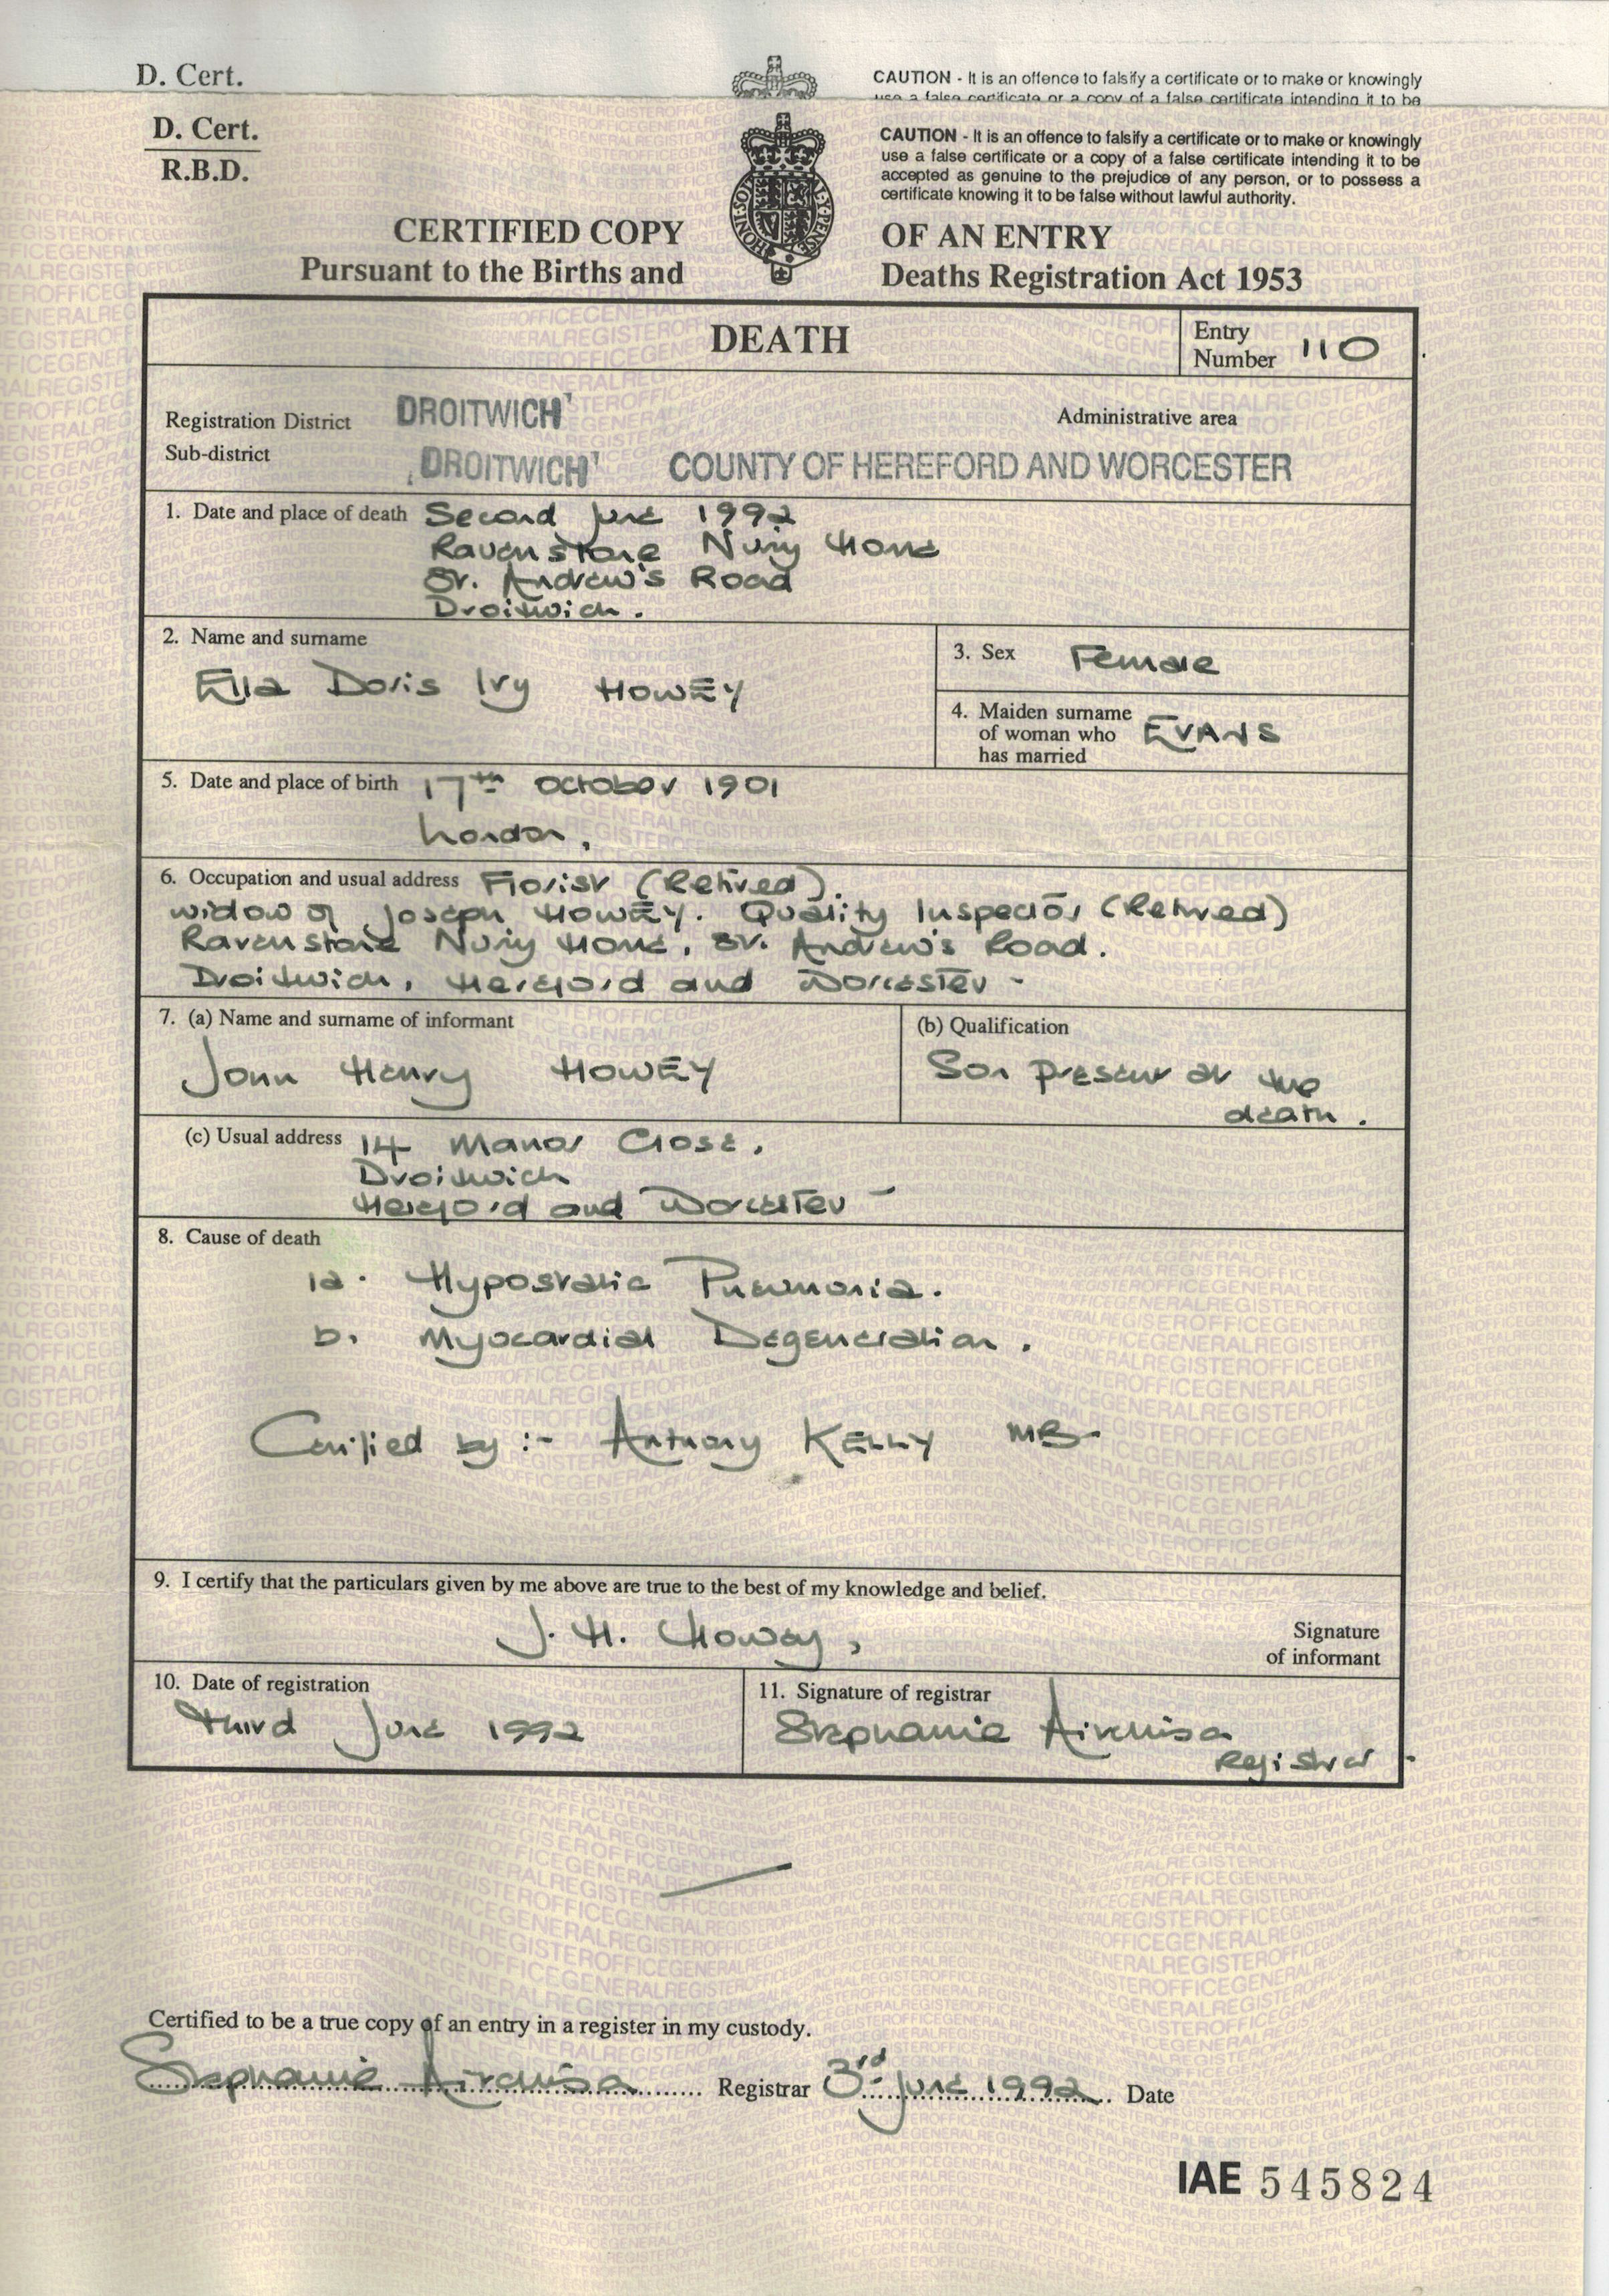 D. Cert.
CAUTION - It is an offence to falsify a certificate or to make or knowingly
use a false certificate or a copy of a false certificate intending it to be
D. Cert.
R.B.D.
CAUTION - It is an offence to falsify a certificate or to make or knowingly
use a false certificate or a copy of a false certificate intending it to be
accepted as genuine to the prejudice of any person, or to possess a
certificate knowing it to be false without lawful authority.
CERTIFIED COPY OF AN ENTRY
Pursuant to the Births and Deaths Registration Act 1953
DEATH
Entry
Number 110
Registration District DROITWICH
Administrative area
Sub-district DROITWICH COUNTY OF HEREFORD AND WORCESTER
1. Date and place of death Second June 1992
Ravenstone Home
St. Andrew's Road
Droitwich.
2. Name and surname
Ella Doris Ivy HOWEY
3. Sex Female
4. Maiden surname
of woman who
has married
EVANS
5. Date and place of birth 17th October 1901
London,
6. Occupation and usual address Florist (Retired).
widow of Joseph HOWEY. Quality Inspector (Retired)
Ravenstone Home, St. Andrew's Road.
Droitwich, Hereford and Worcester -
7. (a) Name and surname of informant
John Henry HOWEY
(b) Qualification
Son present at the
death.
(c) Usual address 14 Manor Close,
Droitwich
Hereford and Worcester -
8. Cause of death
1a. Hypostatic Pneumonia.
b. Myocardial Degeneration.
Certified by :- Antony KELLY MB-
9. I certify that the particulars given by me above are true to the best of my knowledge and belief.
J. H. Howey,
Signature
of informant
10. Date of registration
Third June 1992
11. Signature of registrar
Stephanie
Registrar
Certified to be a true copy of an entry in a register in my custody.
Stephanie Registrar 3rd June 1992 Date
IAE 545824